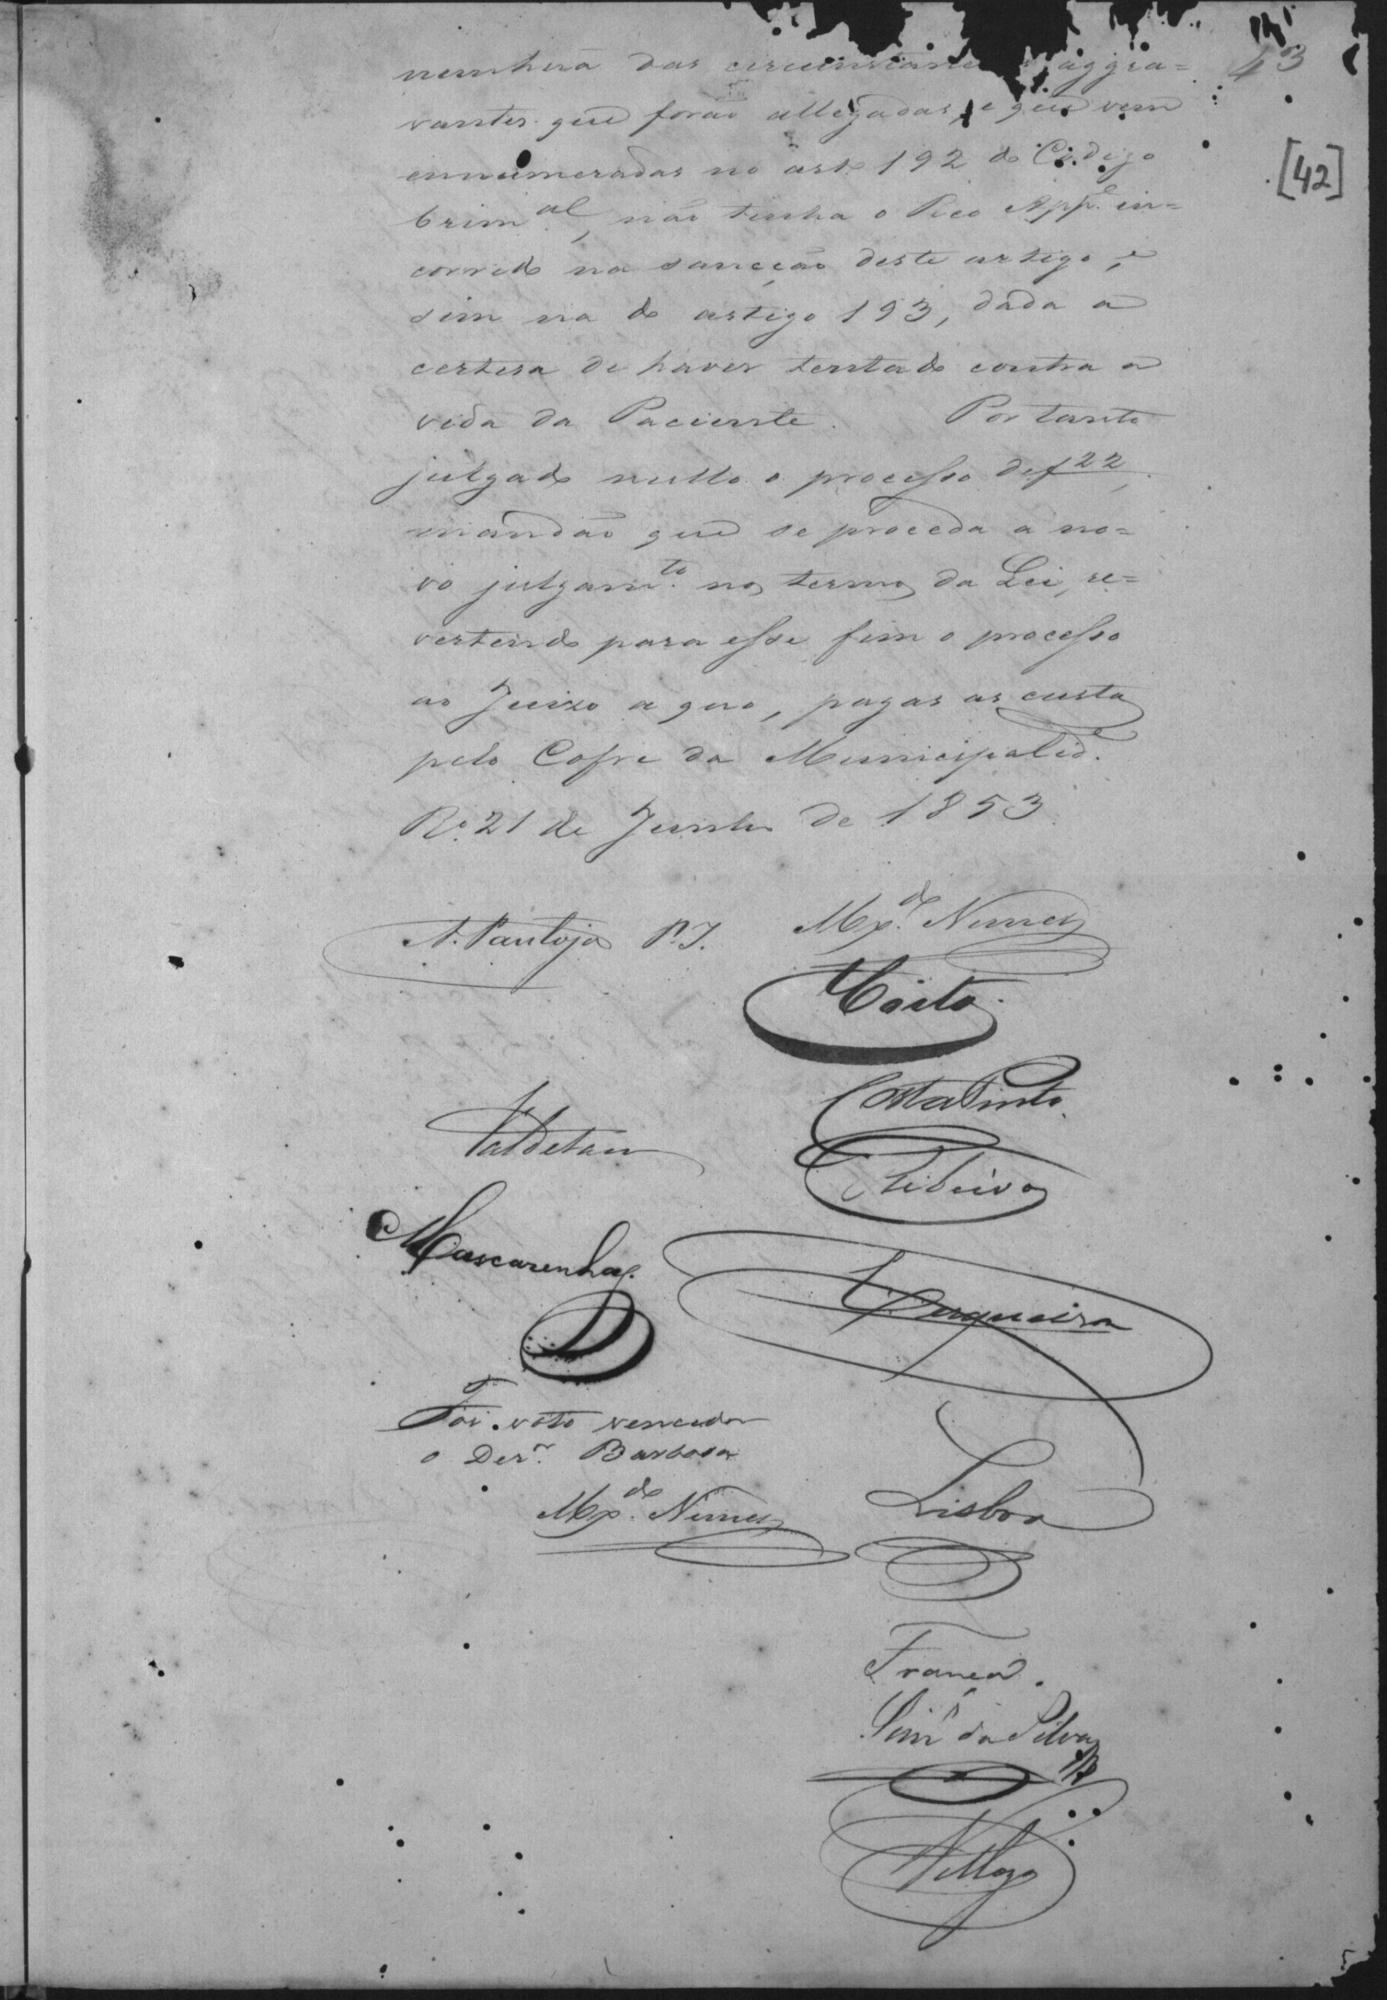 43
[42]
nenhuã das circunstancias aggra=
vantes que forão allegadas, e que vem
ennumeradas no art 192 do Codigo
Crim.al, não tenha o Reo App.e in=
corrido na sancção deste artigo, e
sim na do artigo 193, dada a
certesa de haver tentado contra a
vida da Paciente. Portanto
julgado nullo o processo de f 22,
mandão que se proceda a no=
vo julgam.to nos termos da Lei, re=
vertendo para esse fim o processo
ao Juizo a quo, pagas as custas
pelo Cofre da Municipalid.e
R.o 21 de Junho de 1853
A. Pantoja P. I. Mx.do Nunes
Couto.
Costa Pinto.
Valdetaro
Ribeiro
Mascarenhas.
Cerqueira
Foi voto vencedor
o Dez.or Barbosa
Mx.do Nunes
Lisboa
França.
Sim.s da Silva
Vellozo